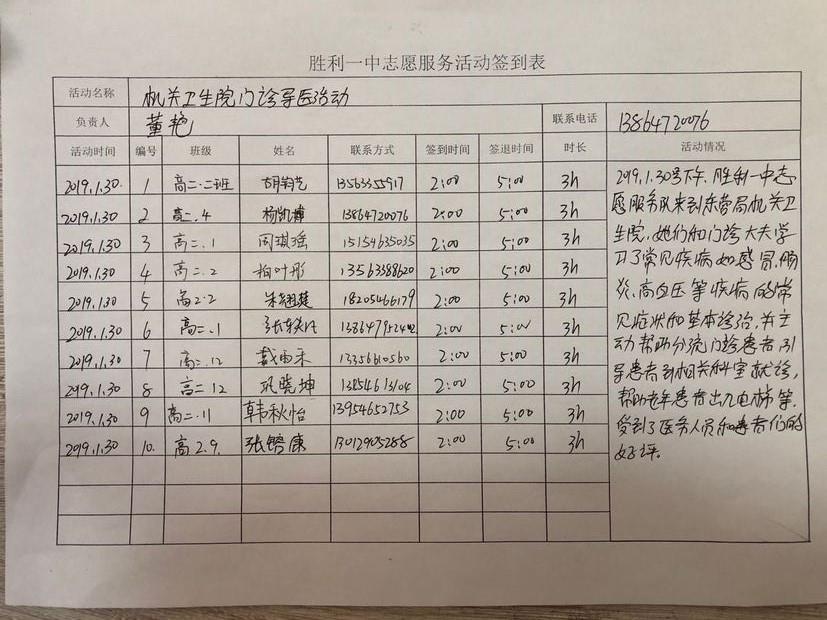 胜利一中志愿服务活动签到表
活动名称 机关卫生院门诊导医活动
负责人 董艳 联系电话 13864720076
活动时间 编号 班级 姓名 联系方式 签到时间 签退时间 时长 活动情况
2019.1.30. 1 高二.二班 13563355917 2:00 5:00 3h
2019.1.30 2 高二.4 13864720076 2:00 5:00 3h
2019.1.30 3 高二.1 周琪瑶 15154635035 2:00 5:00 3h
2019.1.30 4 高二.2 柏叶彤 13563388620 2:00 5:00 3h
2019.1.30 5 高2.2 18205466179 2:00 5:00 3h
2019.1.30 6 高二.1 2:00 5:00 3h
2019.1.30 7 高二.12 13356610560 2:00 5:00 3h
2019.1.30 8 高二12 巩晓坤 13854613104 2:00 5:00 3h
2019.1.30 9 高二.11 韩秋怡 13954652753 2:00 5:00 3h
2019.1.30 10. 高2.9. 张锴康 13012905288 2:00 5:00 3h
2019.1.30号下午.胜利一中志
愿服务队来到东营局机关卫
生院,她们和门诊大夫学
习了常见疾病如感冒.肠
炎、高血压等疾病的常
见症状和基本诊治,并主
动帮助分流门诊患者,引
导患者到相关科室就诊,
帮助老年患者出入电梯等.
受到了医务人员和患者们的
好评。